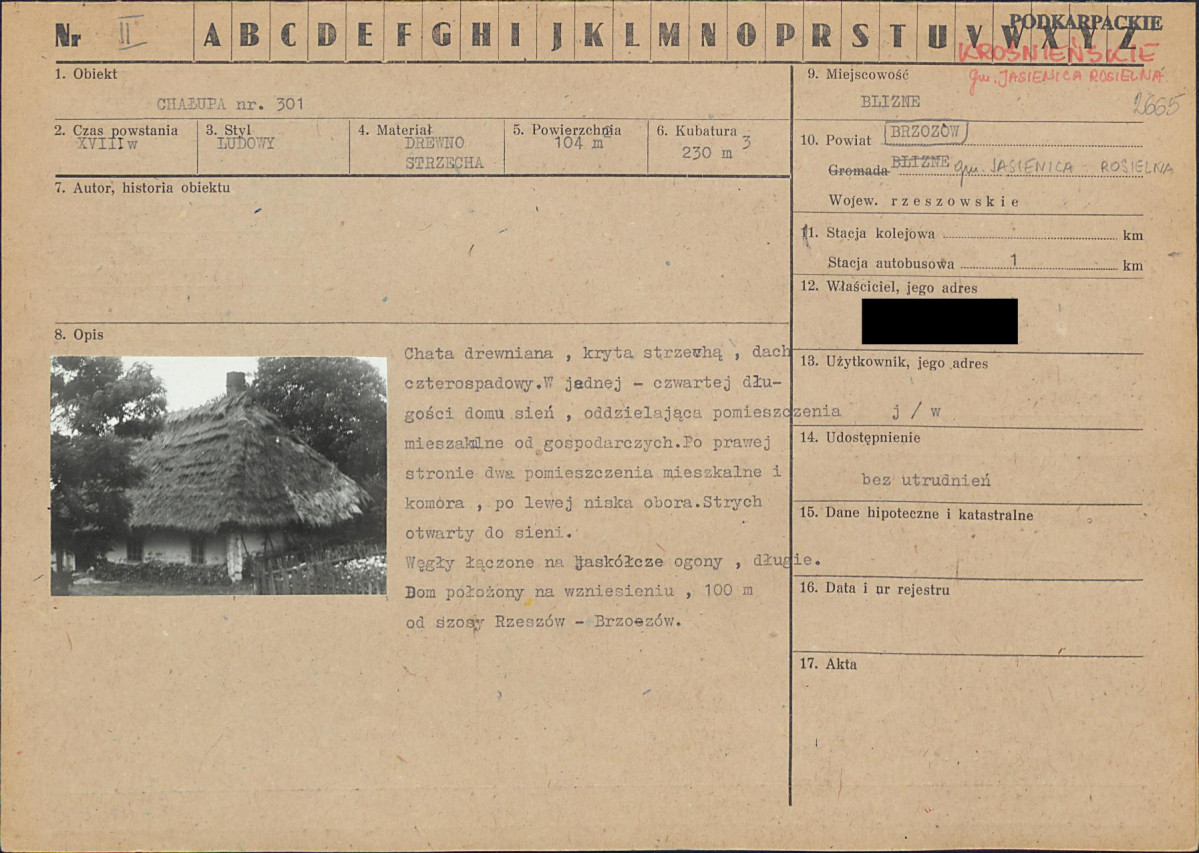 Nr II A B C D E F G H I J K L M N O P R S T U V W X Y Z
PODKARPACKIE
KROŚNIEŃSKIE
gm. JASIENICA ROSIELNA
2665
1. Obiekt
CHAŁUPA nr. 301
2. Czas powstania
XVIII w
3. Styl
LUDOWY
4. Materiał
DREWNO
STRZECHA
5. Powierzchnia
104 m²
6. Kubatura
230 m³
7. Autor, historia obiektu
8. Opis
Chata drewniana , kryta strzechą , dach
czterospadowy.W jednej - czwartej dłu-
gości domu sień , oddzielająca pomieszczenia
mieszkalne od gospodarczych.Po prawej
stronie dwa pomieszczenia mieszkalne i
komora , po lewej niska obora.Strych
otwarty do sieni.
Węgły łączone na jaskółcze ogony , długie.
Dom położony na wzniesieniu , 100 m
od szosy Rzeszów - Brzozów.
9. Miejscowość
BLIZNE
10. Powiat BRZOZÓW
Gromada BLIZNE gm. JASIENICA - ROSIELNA
Wojew. rzeszowskie
11. Stacja kolejowa km
Stacja autobusowa 1 km
12. Właściciel, jego adres
13. Użytkownik, jego adres
j / w
14. Udostępnienie
bez utrudnień
15. Dane hipoteczne i katastralne
16. Data i nr rejestru
17. Akta